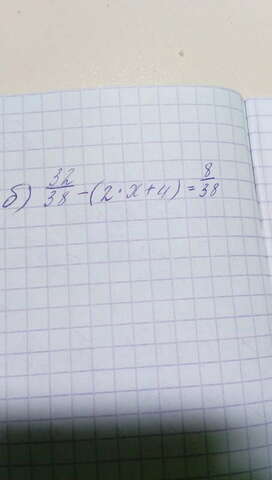 б) 32/38 - (2 · x + 4) = 8/38